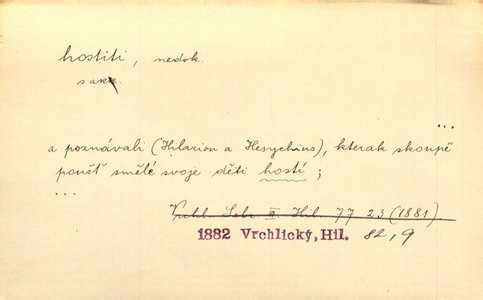 hostiti, nedok.
s ak.
...
a poznávali (Hilarion a Hesychius), kterak skoupě
poušť smělé svoje děti hostí;
...
Vrchl. Sebr. III. Hil 77 23 (1881).
1882 Vrchlický, Hil. 82, 9